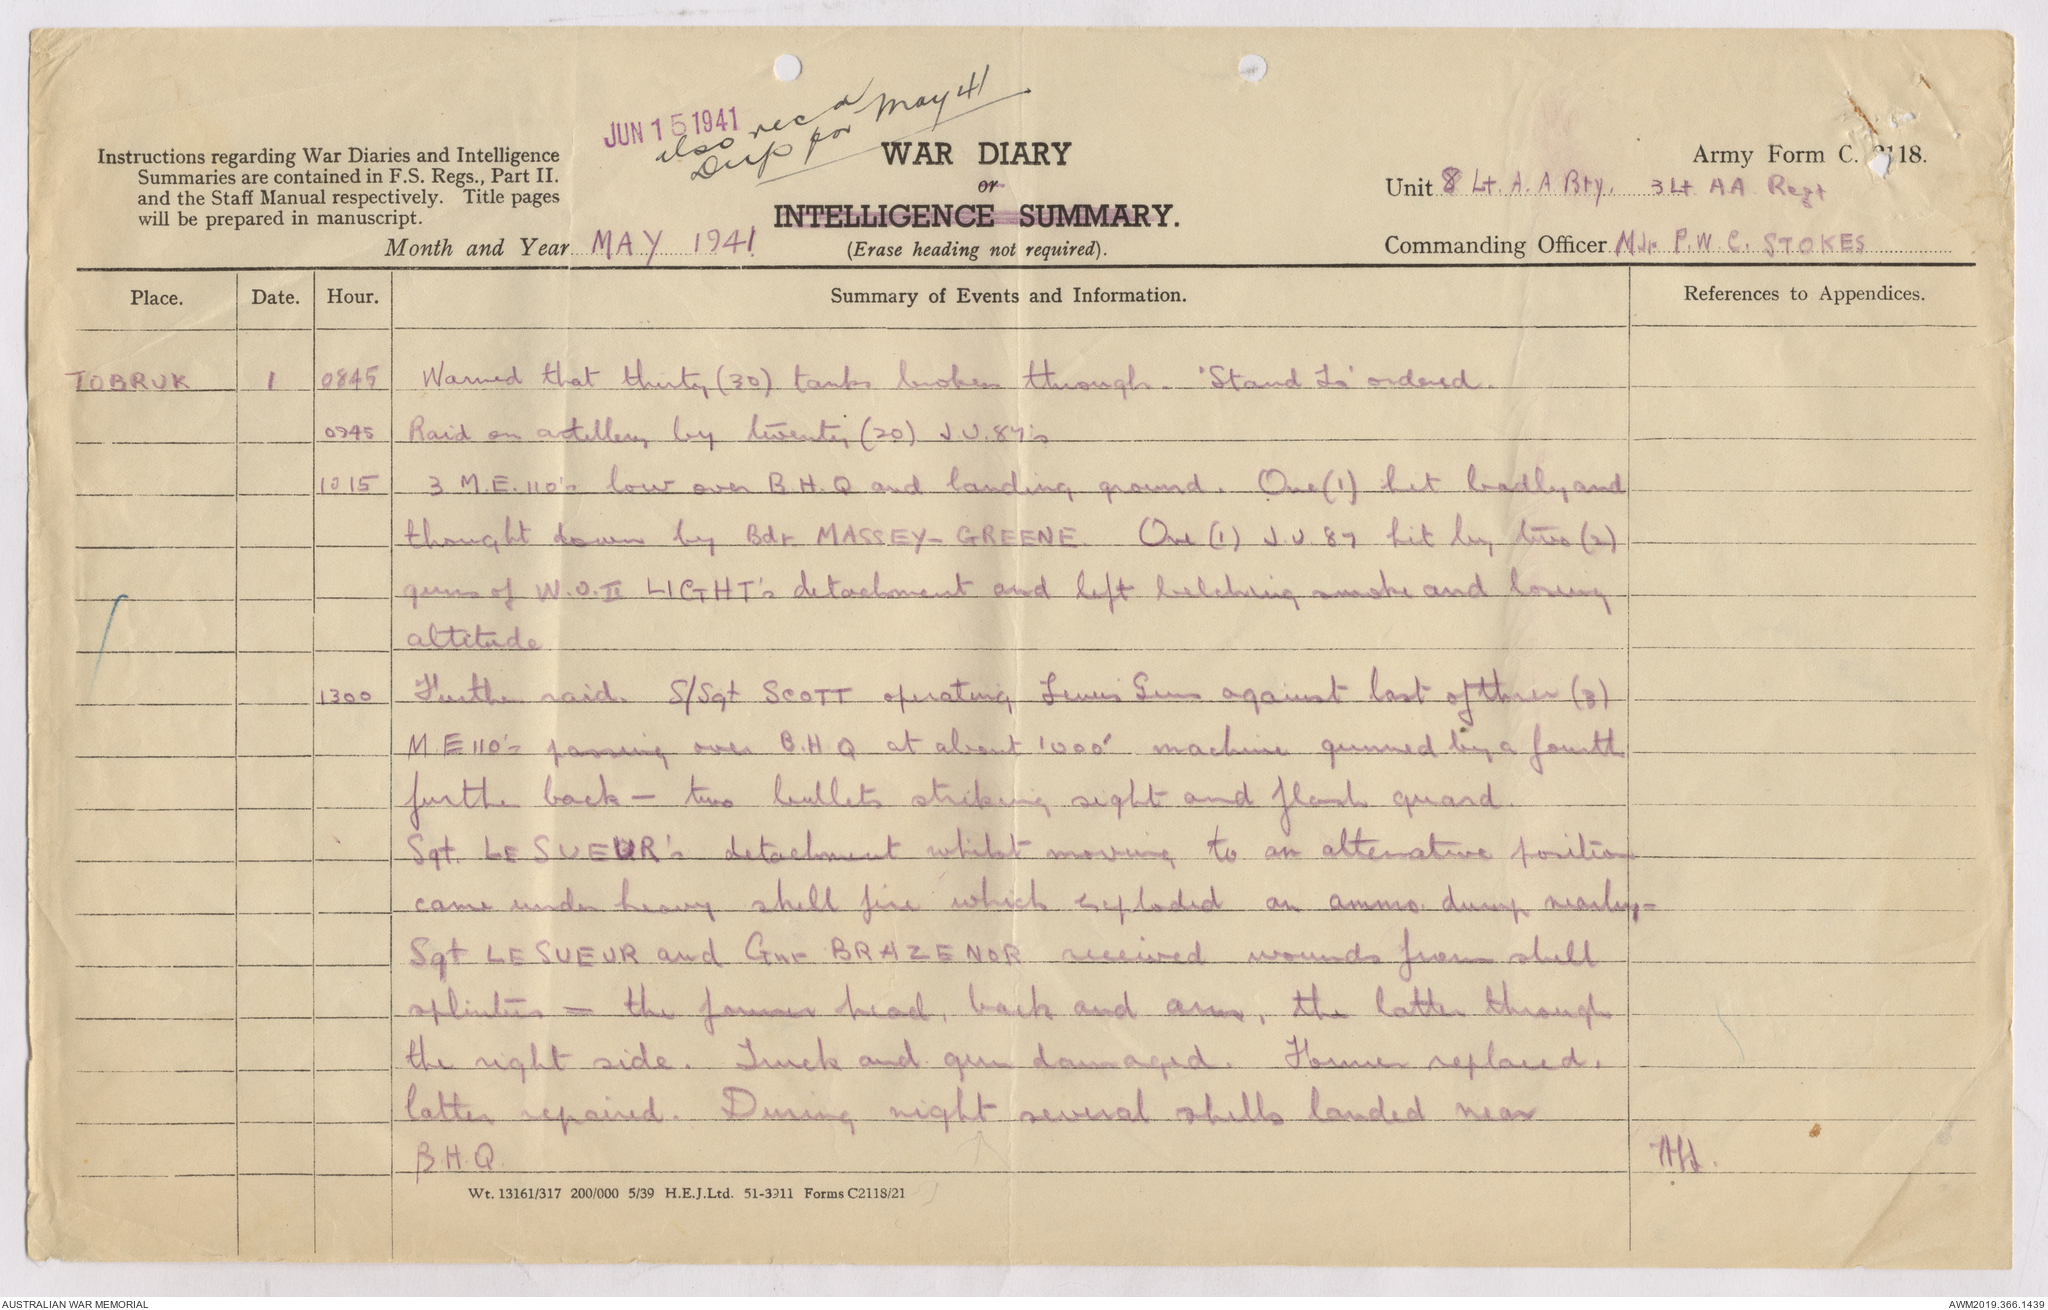 JUN 15 1941
also rec'd
Dup for May 41
Instructions regarding War Diaries and Intelligence
Summaries are contained in F.S. Regs., Part II.
and the Staff Manual respectively. Title pages
will be prepared in manuscript.
WAR DIARY
or
INTELLIGENCE SUMMARY.
(Erase heading not required).
Month and Year MAY 1941
Army Form C. 2118.
Unit 8 Lt. A.A Bty. 3 Lt AA Regt
Commanding Officer Mjr P.W.C. STOKES
Place. Date. Hour. Summary of Events and Information. References to Appendices.
TOBRUK 1 0845 Warned that thirty (30) tanks broken through. 'Stand To' ordered.
0945 Raid on artillery by twenty (20) J.U.87's
1015 3 M.E.110's low over B.H.Q and landing ground. One (1) hit badly and
thought down by Bdr MASSEY-GREENE. One (1) J.U.87 hit by two (2)
guns of W.O.II LIGHT's detachment and left belching smoke and losing
altitude
1300 Further raid. S/Sgt SCOTT operating Lewis Gun against last of three (3)
M.E 110's passing over B.H.Q at about 1000' machine gunned by a fourth
further back - two bullets striking sight and flash guard.
Sgt. LE SUEUR's detachment whilst moving to an alternative position
came under heavy shell fire which exploded an ammo. dump nearby -
Sgt LE SUEUR and Gnr BRAZENOR received wounds from shell
splinters - the former head, back and arm, the latter through
the right side. Truck and gun damaged. Former replaced,
latter repaired. During night several shells landed near
B.H.Q.
Wt. 13161/317 200/000 5/39 H.E.J.Ltd. 51-3911 Forms C2118/21
AUSTRALIAN WAR MEMORIAL
AWM2019.366.1439